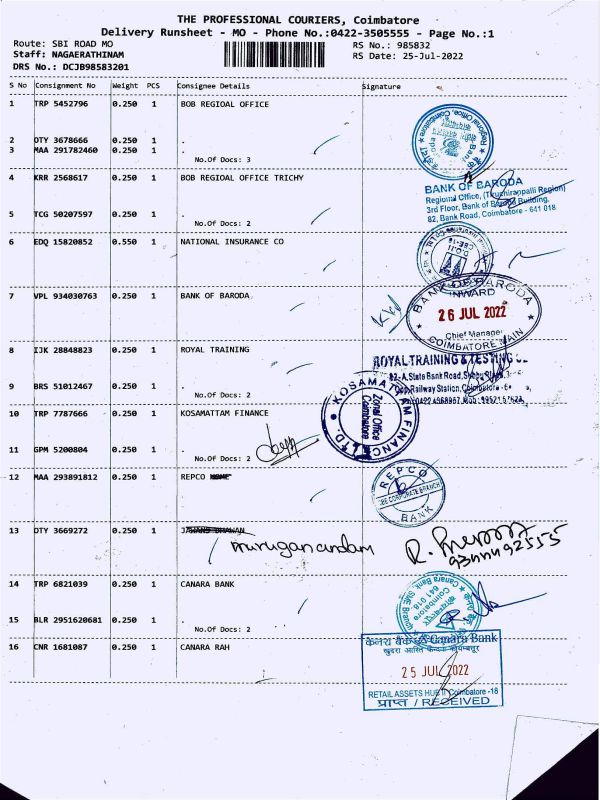 THE PROFESSIONAL COURIERS, Coimbatore
Delivery Runsheet - MO - Phone No.:0422-3505555 - Page No.:1
Route: SBI ROAD MO
Staff: NAGAERATHINAM
DRS No.: DCJB98583201
RS No.: 985832
RS Date: 25-Jul-2022
S No Consignment No Weight PCS Consignee Details Signature
1 TRP 5452796 0.250 1 BOB REGIOAL OFFICE
2 OTY 3678666 0.250 1 .
3 MAA 291782460 0.250 1 .
No.Of Docs: 3
4 KRR 2568617 0.250 1 BOB REGIOAL OFFICE TRICHY
BANK OF BARODA
Regional Office, (Tiruchirappalli Region)
3rd Floor, Bank of Baroda Building,
82, Bank Road, Coimbatore - 641 018
5 TCG 50207597 0.250 1 .
No.Of Docs: 2
6 EDQ 15820852 0.550 1 NATIONAL INSURANCE CO
7 VPL 934030763 0.250 1 BANK OF BARODA
BANK OF BARODA
INWARD
26 JUL 2022
Chief Manager
COIMBATORE MAIN
8 IJK 28848823 0.250 1 ROYAL TRAINING
ROYAL TRAINING & TESTING
State Bank Road,
Railway Station, Coimbatore
9 BRS 51012467 0.250 1 .
No.Of Docs: 2
10 TRP 7787666 0.250 1 KOSAMATTAM FINANCE
KOSAMATTAM FINANCE LTD.
Zonal Office
Coimbatore
11 GPM 5200804 0.250 1 .
No.Of Docs: 2
12 MAA 293891812 0.250 1 REPCO
REPCO
CORPORATE BRANCH
BANK
13 OTY 3669272 0.250 1
muruganandam
14 TRP 6821039 0.250 1 CANARA BANK
Canara Bank
Coimbatore
641 018
SME Branch
15 BLR 2951620681 0.250 1 .
No.Of Docs: 2
16 CNR 1681087 0.250 1 CANARA RAH
केनरा बैंक Canara Bank
25 JUL 2022
RETAIL ASSETS HUB II Coimbatore -18
प्राप्त / RECEIVED